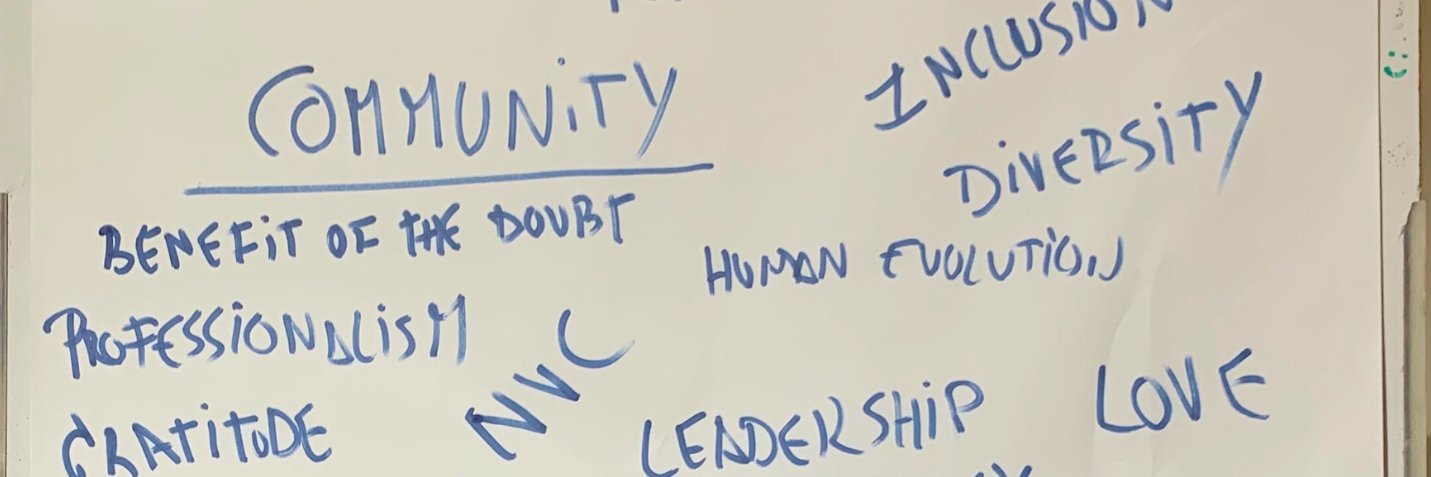 INCLUSION
COMMUNITY
DIVERSITY
BENEFIT OF THE DOUBT
HUMAN EVOLUTION
PROFESSIONALISM
NVC
LOVE
LEADERSHIP
GRATITUDE